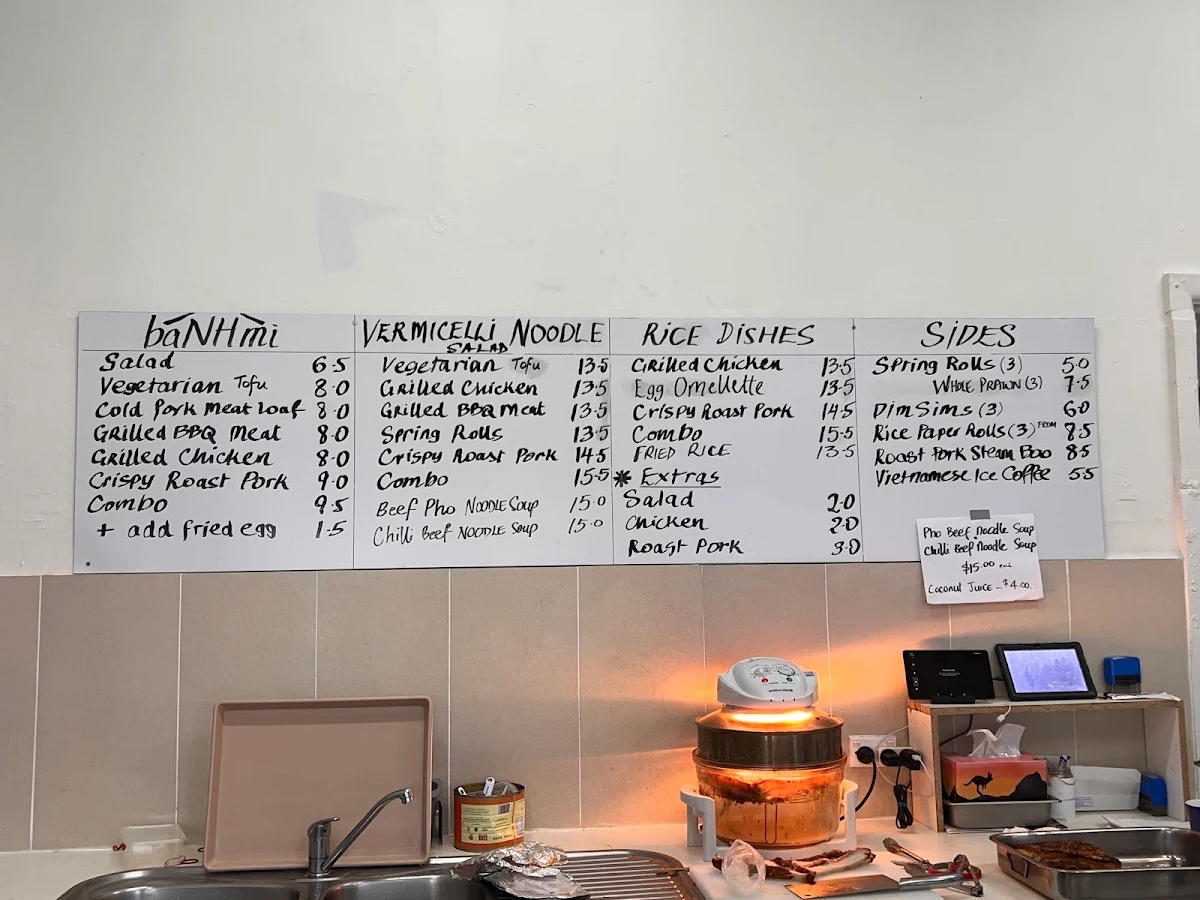 báNHmì
Salad 6.5
Vegetarian Tofu 8.0
Cold Pork Meat Loaf 8.0
Grilled BBQ Meat 8.0
Grilled Chicken 8.0
Crispy Roast Pork 9.0
Combo 9.5
+ add fried egg 1.5
VERMICELLI NOODLE
SALAD
Vegetarian Tofu 13.5
Grilled Chicken 13.5
Grilled BBQ Meat 13.5
Spring Rolls 13.5
Crispy Roast Pork 14.5
Combo 15.5
Beef Pho NOODLE Soup 15.0
Chilli Beef NOODLE Soup 15.0
RICE DISHES
Grilled Chicken 13.5
Egg Omellette 13.5
Crispy Roast Pork 14.5
Combo 15.5
FRIED RICE 13.5
* Extras
Salad 2.0
Chicken 2.0
Roast Pork 3.0
SIDES
Spring Rolls (3) 5.0
WHOLE PRAWN (3) 7.5
Dim Sims (3) 6.0
Rice Paper Rolls (3) FROM 8.5
Roast Pork Steam Bao 8.5
Vietnamese Ice Coffee 5.5
Pho Beef Noodle Soup
Chilli Beef Noodle Soup
$15.00 each
Coconut Juice - $4.00